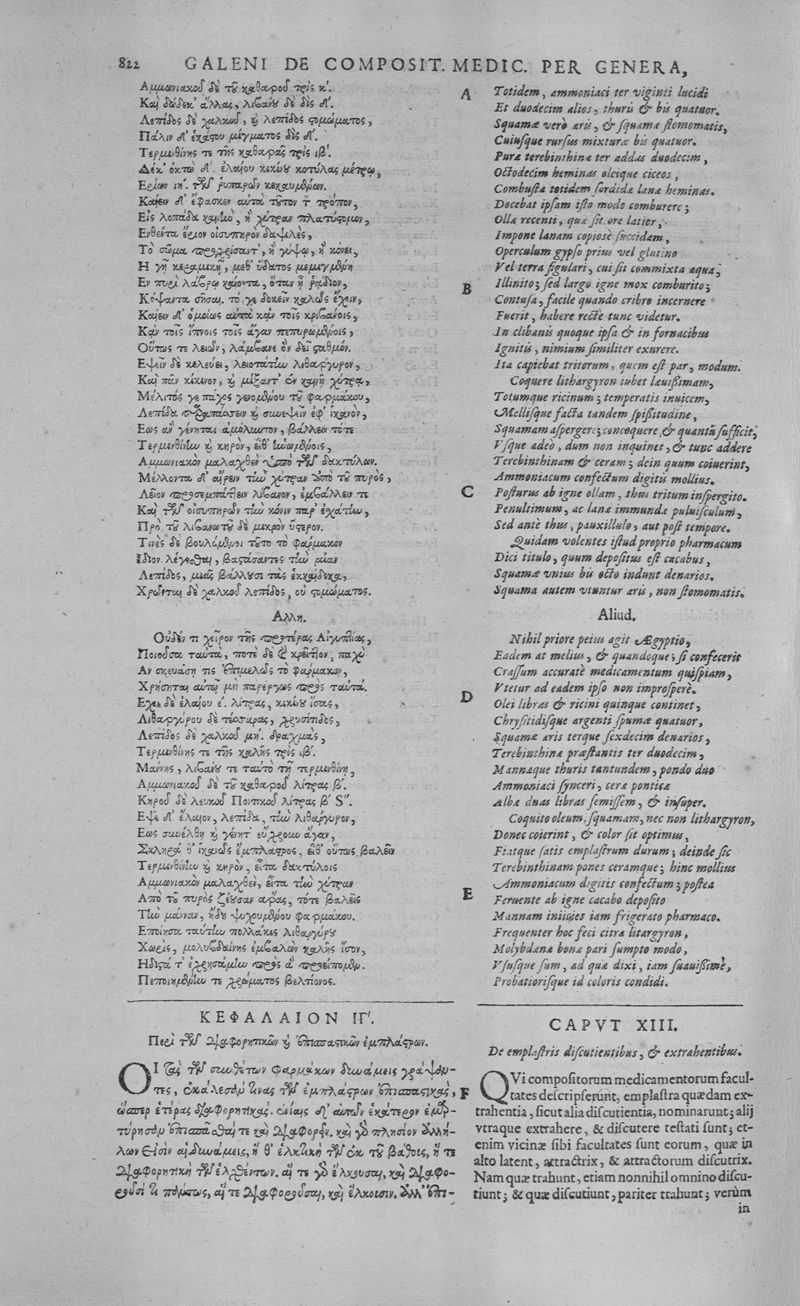 822 GALENI DE COMPOSIT. MEDIC. PER GENERA,
Αμμωνιακοῦ δὲ τοῦ καθαροῦ τρὶς κʹ.
Καὶ δώδεκ' ἄλλας, λιβάνου δὲ δὶς δʹ.
Λεπίδος δὲ χαλκοῦ, καὶ λεπίδος στομώματος,
Πάλιν δ' ἑκάστου μίγματος δὶς δʹ.
Τερμινθίνης τε τῆς καθαρᾶς τρὶς ιβʹ.
Δέκ' ὀκτὼ δ' ἐλαίου κικίνου κοτύλας μέτρῳ,
Ερίων ιηʹ. τῶν ῥυπαρῶν κεκαυμένων.
Καίειν δ' ἔφασκεν αὐτὰ τοῦτον τ τρόπον,
Εἰς λοπάδα καινὴν, ἢ χύτραν πλατύστομον,
Ενθέντα ἔριον οἰσυπηρὸν δαψιλὲς,
Τὸ σῶμα προχρίσαντ', ἢ γύψῳ, ἢ κόνει,
Η γῇ κεραμικῇ, μεθ' ὕδατος μεμιγμένῃ
Εν πυρὶ λάβρῳ καίοντα, ὅταν ᾖ ῥᾴδιον,
Κόψαντα σῆσαι. τό γε δοκεῖν καλῶς ἔχειν,
Καίειν δ' ὁμοίως αὐτὰ κἀν τοῖς κριβάνοις,
Κἀν τοῖς ἰπνοῖς τοῖς ἄγαν πεπυρωμένοις,
Οὕτως τε λειῶν, λάμβανε ὃν δεῖ σταθμόν.
Εψεῖν δὲ κελεύει, λειοτάτην λιθάργυρον,
Καὶ πᾶν κίκινον, καὶ μίξαντ' ἐν καινῇ χύτρᾳ,
Μέλιτός γε πάχος γενομένου τοῦ φαρμάκου,
Λεπίδα προσπάσσειν καὶ συνεψεῖν ἐφ' ἱκανὸν,
Εως ἂν γένηται ἀμόλυντον, βάλλειν τότε
Τερμινθίνην καὶ κηρὸν, εἶθ' ἡνωμένοις,
Αμμωνιακὸν μαλαχθὲν ὑπὸ τῶν δακτύλων.
Μέλλοντα δ' αἴρειν τὴν χύτραν ἀπὸ τοῦ πυρὸς,
Λεῖον προσεμπάττειν λίβανον, ἐμβάλλειν τε
Καὶ τῶν οἰσυπηρῶν τὴν κόνιν παρ' ἐσχάτην,
Πρὸ τοῦ λιβανωτοῦ δὲ μικρὸν ὕστερον.
Τινὲς δὲ βουλόμενοι τοῦτο τὸ φάρμακον
Ιδιον λέγεσθαι, βαστάσαντες τὴν μίαν
Λεπίδος, μιᾶς βάλλουσι τὰς ἑκκαίδεκα,
Χρῶνται δὲ χαλκοῦ λεπίδος, οὐ στομώματος.
Αλλη.
Οὐδέν τι χεῖρον τῆς προτέρας Αἰγυπτίας,
Ποιοῦσα ταὐτὰ, ποτὲ δὲ καὶ κρεῖττον, παχὺ
Αν σκευάσῃ τις ἐπιμελῶς τὸ φάρμακον,
Χρήσηται αὐτῷ μὴ παρέργως πρὸς ταὐτά.
Εχει δὲ ἐλαίου εʹ. λίτρας, κικίνου ἴσας,
Λιθαργύρου δὲ τέσσαρας, χρυσίτιδος,
Λεπίδος δὲ χαλκοῦ μηʹ. δραχμὰς,
Τερμινθίνης τε τῆς καλῆς τρὶς ιβʹ.
Μάννης, λιβάνου τε ταὐτὸ τῇ τερμινθίνῃ,
Αμμωνιακοῦ δὲ τοῦ καθαροῦ λίτρας βʹ.
Κηροῦ δὲ λευκοῦ Ποντικοῦ λίτρας βʹ Sʺ.
Εψε δ' ἔλαιον, λεπίδα, τὴν λιθάργυρον,
Εως συνέλθῃ καὶ γένητ' εὔχρουν ἄγαν,
Σκληρὰ θ' ἱκανῶς ἔμπλαστρος, εἶθ' οὕτως βαλεῖν
Τερμινθίνην καὶ κηρὸν, εἶτα δακτύλοις
Αμμωνιακὸν μαλαχθὲν, εἶτα τὴν χύτραν
Απὸ τοῦ πυρὸς ζέουσαν ἄρας, τότε βαλεῖς
Τὴν μάνναν, ἤδη ψυχομένου φαρμάκου.
Εποίησα ταύτην πολλάκις λιθαργύρου
Χωρὶς, μολυβδαίνης ἐμβαλὼν καλῆς ἴσον,
Ηδιστά τ' ἐχρησάμην πρὸς ἃ προείπομεν.
Πεποιημένην τε χρώματος βελτίονος.
ΚΕΦΑΛΑΙΟΝ ΙΓʹ.
Περὶ τῶν διαφορητικῶν καὶ ἐπισπαστικῶν ἐμπλάστρων.
ΟΙ τὰς τῶν συνθέτων φαρμάκων δυνάμεις γράψαν-
τες, ἐκάλεσάν τινας τῶν ἐμπλάστρων ἐπισπαστικὰς,
ὥσπερ ἑτέρας διαφορητικάς. ἐνίας δ' αὐτῶν ἑκάτερον ἐμαρ-
τύρησαν ἐπισπᾶσθαί τε καὶ διαφορεῖν. καὶ γὸ πλησίον ἀλλή-
λων εἰσὶν αἱ δυνάμεις, ἥ θ' ἑλκτικὴ τῶν ἐκ τοῦ βάθους, ἥ τε
διαφορητικὴ τῶν ἑλχθέντων. αἵ τε γὸ ἕλκουσαι, καὶ διαφο-
ροῦσί τι πάντως, αἵ τε διαφοροῦσαι, καὶ ἕλκουσιν. ἀλλ' ἐπι-
A
B
C
D
E
F
Totidem, ammoniaci ter viginti lucidi
Et duodecim alios, thuris & bis quatuor.
Squamæ verò æris, & squamæ stomomatis,
Cuiusque rursus mixturæ bis quatuor.
Puræ terebinthinæ ter addas duodecim,
Octodecim heminas oleique ciceos,
Combustæ totidem sordidæ lanæ heminas.
Docebat ipsam isto modo comburere;
Ollæ recenti, quæ sit ore latier,
Impone lanam copiosè succidam,
Operculum gypso prius vel glutino
Vel terra figulari, cui sit commixta aqua,
Illinito; sed largo igne mox comburito;
Contusa, facile quando cribro incernere
Fuerit, habere rectè tunc videtur.
In clibanis quoque ipsa & in fornacibus
Ignitis, nimium similiter exurere.
Ita capiebat tritorum, quem est par, modum.
Coquere lithargyron iubet læuißimam,
Totumque ricinum; temperatis inuicem,
Mellisque facta tandem spißitudine,
Squamam aspergere; concoquere, & quantũ sufficit;
Vsque adeò, dum non inquinet, & tunc addere
Terebinthinam & ceram; dein quum coiuerint,
Ammoniacum confectum digitis mollius.
Posturus ab igne ollam, thus tritum inspergito.
Penultimum, ac lanæ immundæ puluisculum,
Sed antè thus, pauxillulo, aut post tempore.
Quidam volentes istud proprio pharmacum
Dici titulo, quum depositus est cacabus,
Squamæ vnius bis octo indunt denarios.
Squama autem vtuntur æris, non stomomatis.
Aliud.
Nihil priore peius agit Ægyptio,
Eadem at melius, & quandoque; si confecerit
Crassum accuratè medicamentum quispiam,
Vtetur ad eadem ipso non improsperè.
Olei libras & ricini quinque continet,
Chrysitidisque argenti spumæ quatuor,
Squamæ æris terque sexdecim denarios,
Terebinthinæ præstantis ter duodecim,
Mannæque thuris tantundem, pondo duo
Ammoniaci synceri, ceræ ponticæ
Albæ duas libras semissem, & insuper.
Coquito oleum, squamam, nec non lithargyron,
Donec coierint, & color sit optimus,
Fiatque satis emplastrum durum; deinde sic
Terebinthinam pones ceramque; hinc mollius
Ammoniacum digitis confectum; postea
Feruente ab igne cacabo deposito
Mannam iniicies iam frigerato pharmaco.
Frequenter hoc feci citra litargyron,
Molybdænæ bonæ pari sumpto modo,
Vsusque sum, ad quæ dixi, iam suauißimè,
Probatiorisque id coloris condidi.
CAPVT XIII.
De emplastris discutientibus, & extrahentibus.
QVi compositorum medicamentorum facul-
tates descripserunt, emplastra quædam ex-
trahentia, sicut alia discutientia, nominarunt; alij
vtraque extrahere, & discutere testati sunt; et-
enim vicinæ sibi facultates sunt eorum, quæ in
alto latent, attractrix, & attractorum discutrix.
Nam quæ trahunt, etiam nonnihil omnino discu-
tiunt; & quæ discutiunt, pariter trahunt; verùm
in